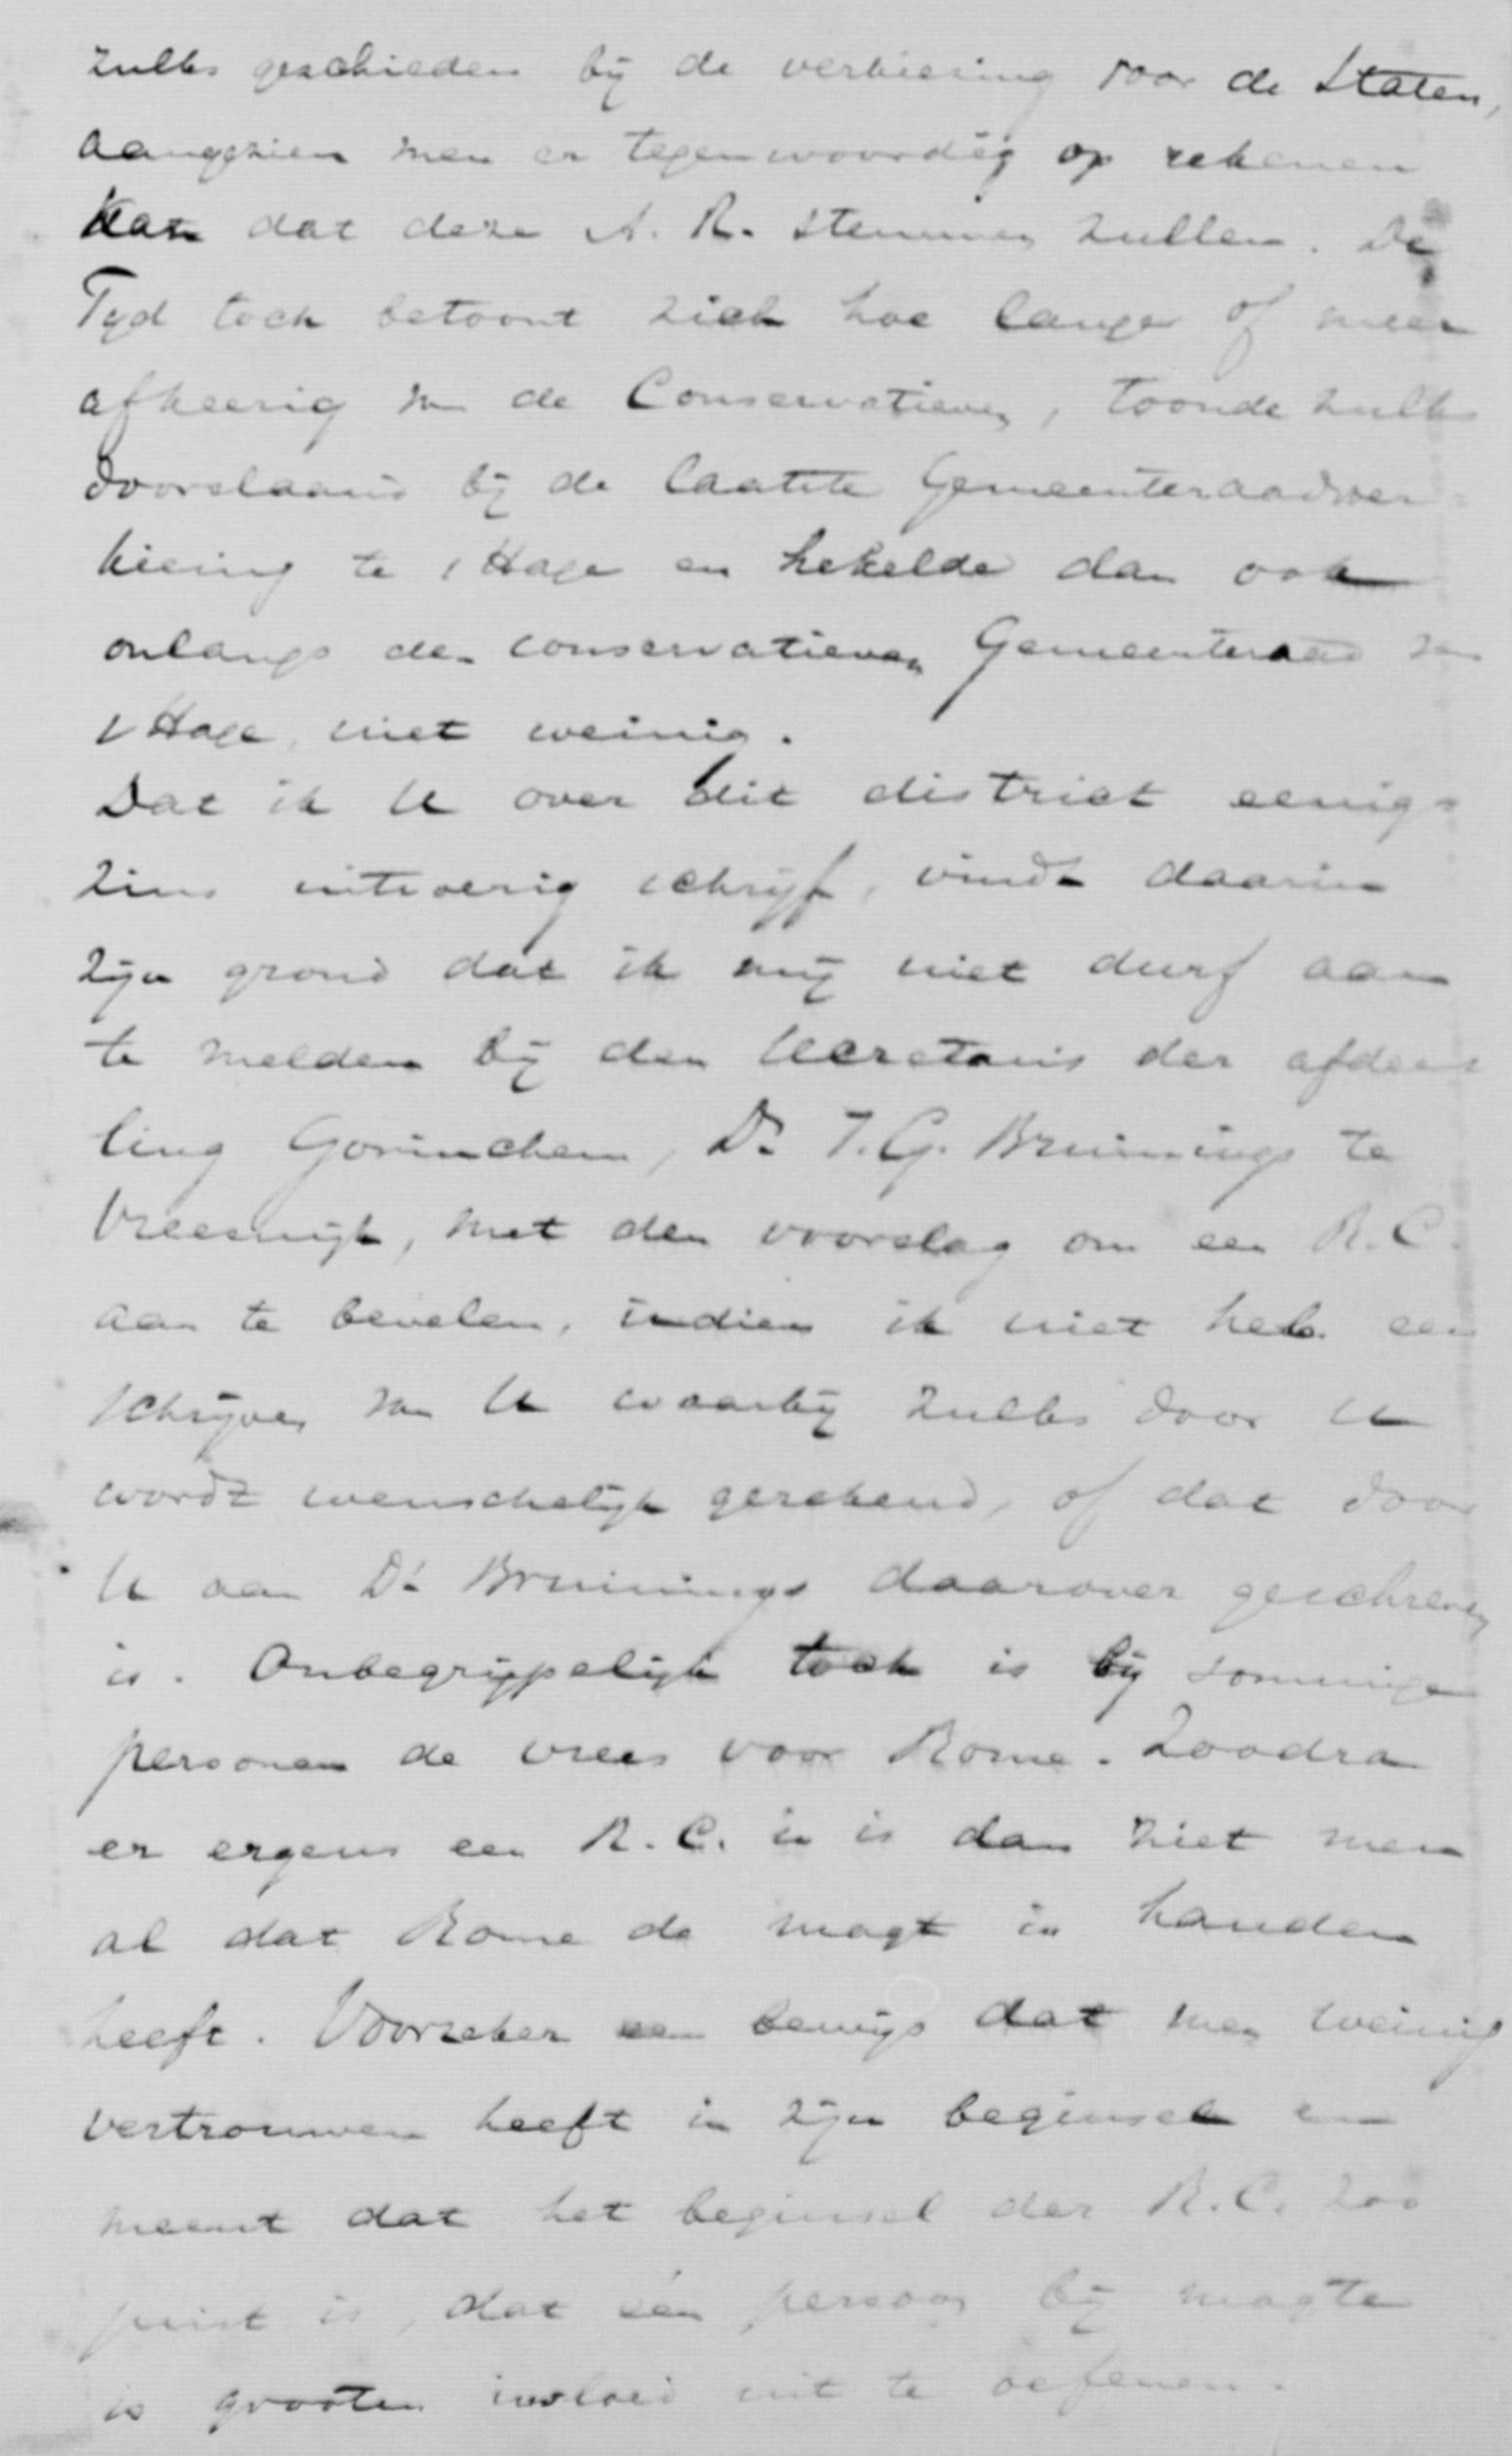 zulks geschieden bij de verkiezing voor de Staten,
aangezien men er tegenwoordig op rekenen
kan dat deze A. R. stemmen zullen. De
Tyd toch betoont zich hoe langer of meer
afkeerig van de Conservatieven, toonde zulks
doorslaand bij de laatste Gemeenteraadsver=
kiezing te 's Hage en hekelde dan ook
onlangs den conservatieven Gemeenteraad van
's Hage, niet weinig.
Dat ik U over dit district eenigs
zins uitvoerig schrijf, vindt daarin
zijn grond dat ik mij niet durf aan
te melden bij den Secretaris der afdee
ling Gorinchem, Ds J. G. Bruinings te
Vreeswijk, met den voorslag om een R. C.
aan te bevelen, indien ik niet heb een
schrijven van U waarbij zulks door U
wordt wenschelijk gerekend, of dat door
U aan Ds Bruinings daarover geschreven
is. Onbegrijpelijk toch is bij sommige
personen de vrees voor Rome. Zoodra
er ergens een R. C. in is dan ziet men
al dat Rome de magt in handen
heeft. Voorzeker een bewijs dat men weinig
vertrouwen heeft in zijn beginsel en
meent dat het beginsel der R. C. zoo
juist is, dat één persoon bij magte
is grooten invloed uit te oefenen.